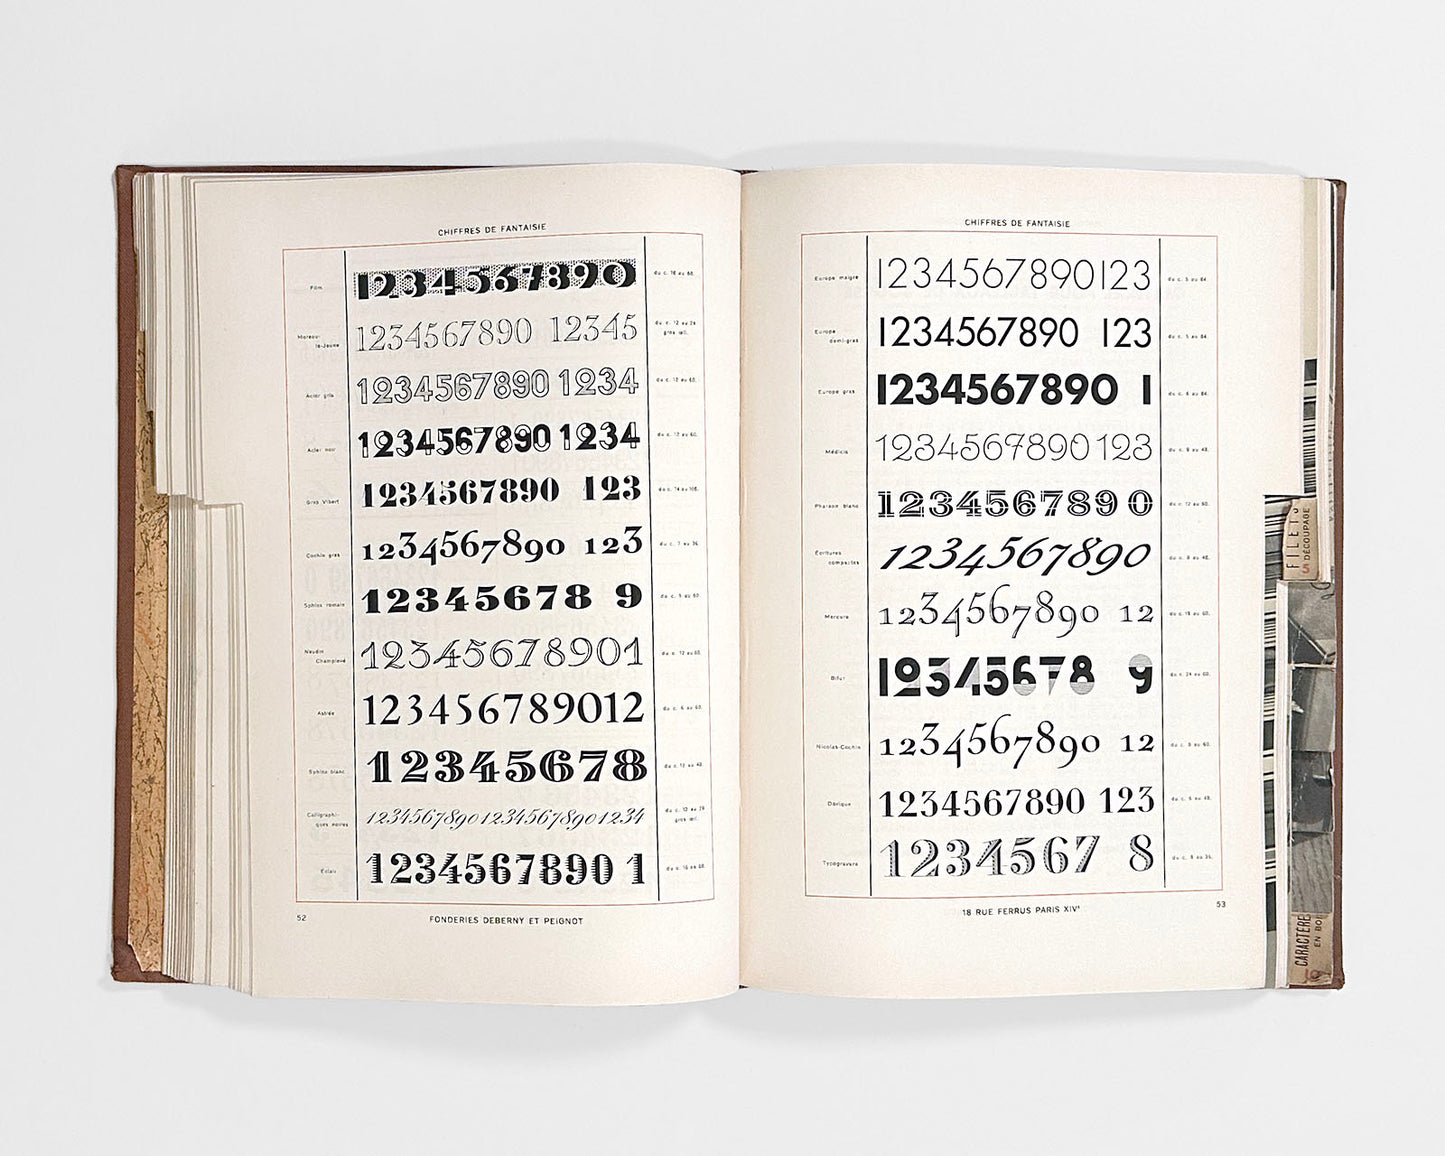 CHIFFRES DE FANTAISIE
Film 1234567890 du c. 16 au 60.
Moreau-le-Jeune 1234567890 12345 du c. 12 au 24 gros œil.
Acier gris 1234567890 1234 du c. 12 au 60.
Acier noir 1234567890 1234 du c. 12 au 60.
Gras Vibert 1234567890 123
Cochin gras 1234567890 123
Sphinx romain 12345678 9
Naudin Champlevé 12345678901 du c. 12 au 60.
Astrée 123456789012 du c. 6 au 60.
Sphinx blanc 12345678 du c. 12 au 48.
Calligraphiques noires 123456789012345678901234 du c. 12 au 28 gros œil.
Eclair 1234567890 1
52
FONDERIES DEBERNY ET PEIGNOT
CHIFFRES DE FANTAISIE
Europe maigre 1234567890123 du c. 5 au 84.
Europe demi-gras 1234567890 123 du c. 5 au 84.
Europe gras 1234567890 1 du c. 6 au 84.
Médicis 1234567890 123 du c. 8 au 48.
Pharaon blanc 123456789 0 du c. 12 au 60.
Ecritures composites 1234567890 du c. 8 au 48.
Mercure 1234567890 12
Bifur 12345678 9 du c. 24 au 60.
Nicolas-Cochin 1234567890 12
Dorique 1234567890 123 du c. 6 au 48.
Typogravure 1234567 8 du c. 8 au 36.
18 RUE FERRUS PARIS XIVᵉ
53
FILETS
DÉCOUPAGE
5
CARACTERE
EN BOI
10